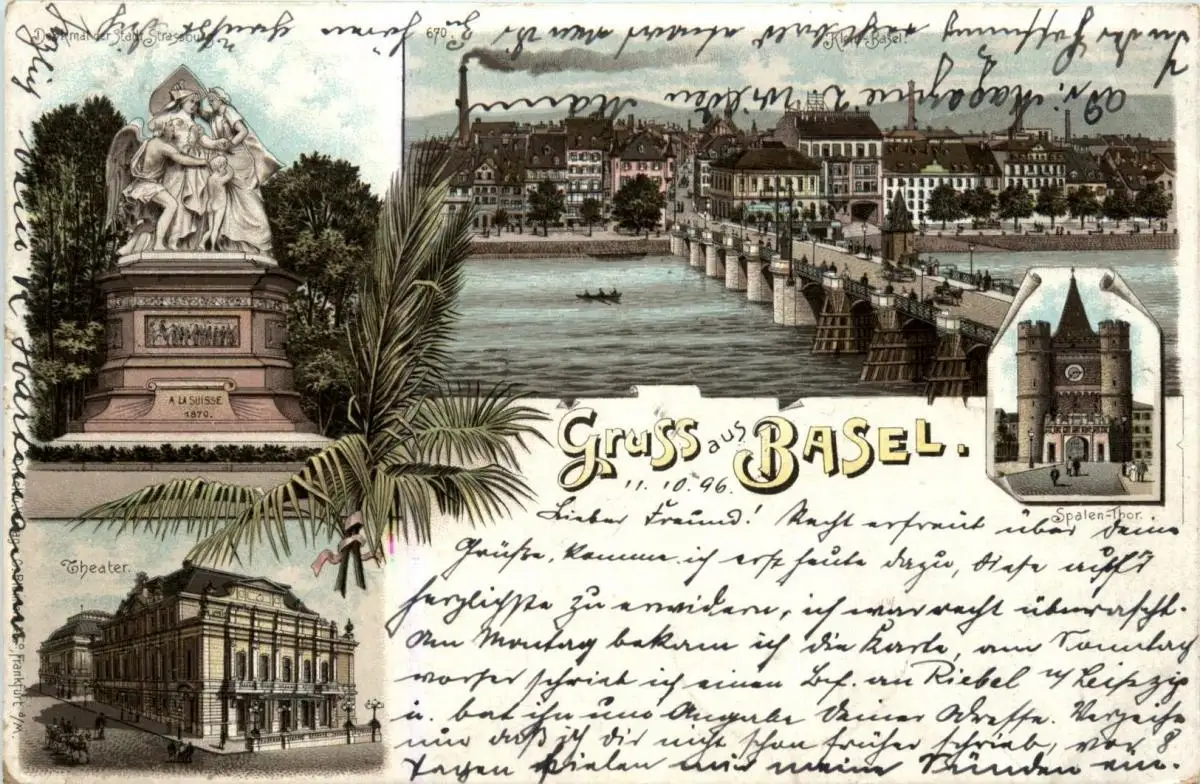 Denkmal der Stadt Strassburg
670.
Klein-Basel.
A LA SUISSE
1870.
Gruss aus BASEL.
Spalen-Thor.
Theater.
Frankfurt a/M.
11.10.96.
Lieber Freund! Recht erfreut über deine
Grüße, komme ich erst heute dazu, diese aufs
herzlichste zu erwidern, ich war recht überrascht.
Am Montag bekam ich die Karte, am Sonntag
vorher schrieb ich einen Brf. an Riebel in Leipzig
u. bat ihn um Angabe deiner Adresse. Verzeihe
mir daß ich dir nicht schon früher schrieb, vor 8
Tagen fielen mir meine Sünden ein.
In der Hoffnung recht bald etwas von dir zu hören
grüßt dich